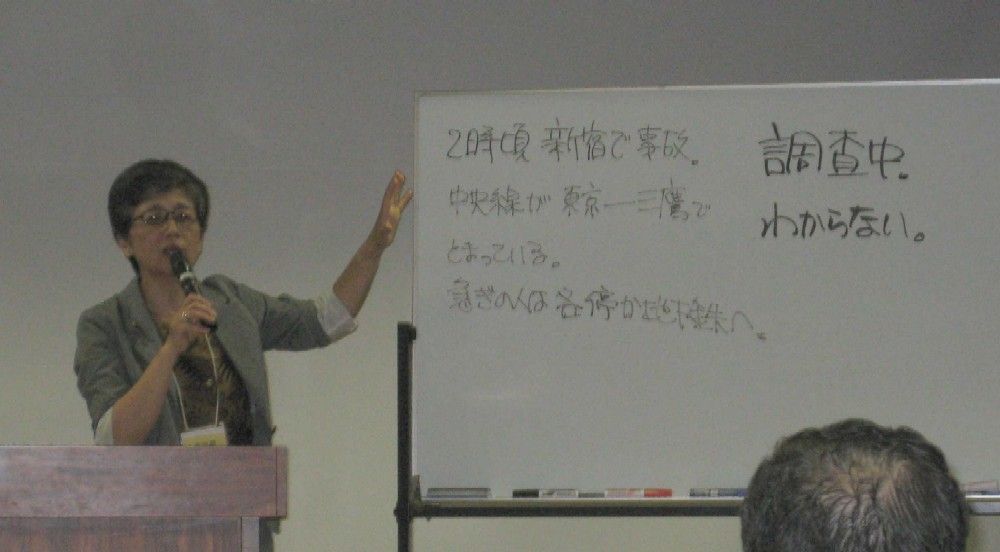 2時頃 新宿で事故。
中央線が東京―三鷹で
とまっている。
急ぎの人は各停か地下鉄へ。
調査中。
わからない。